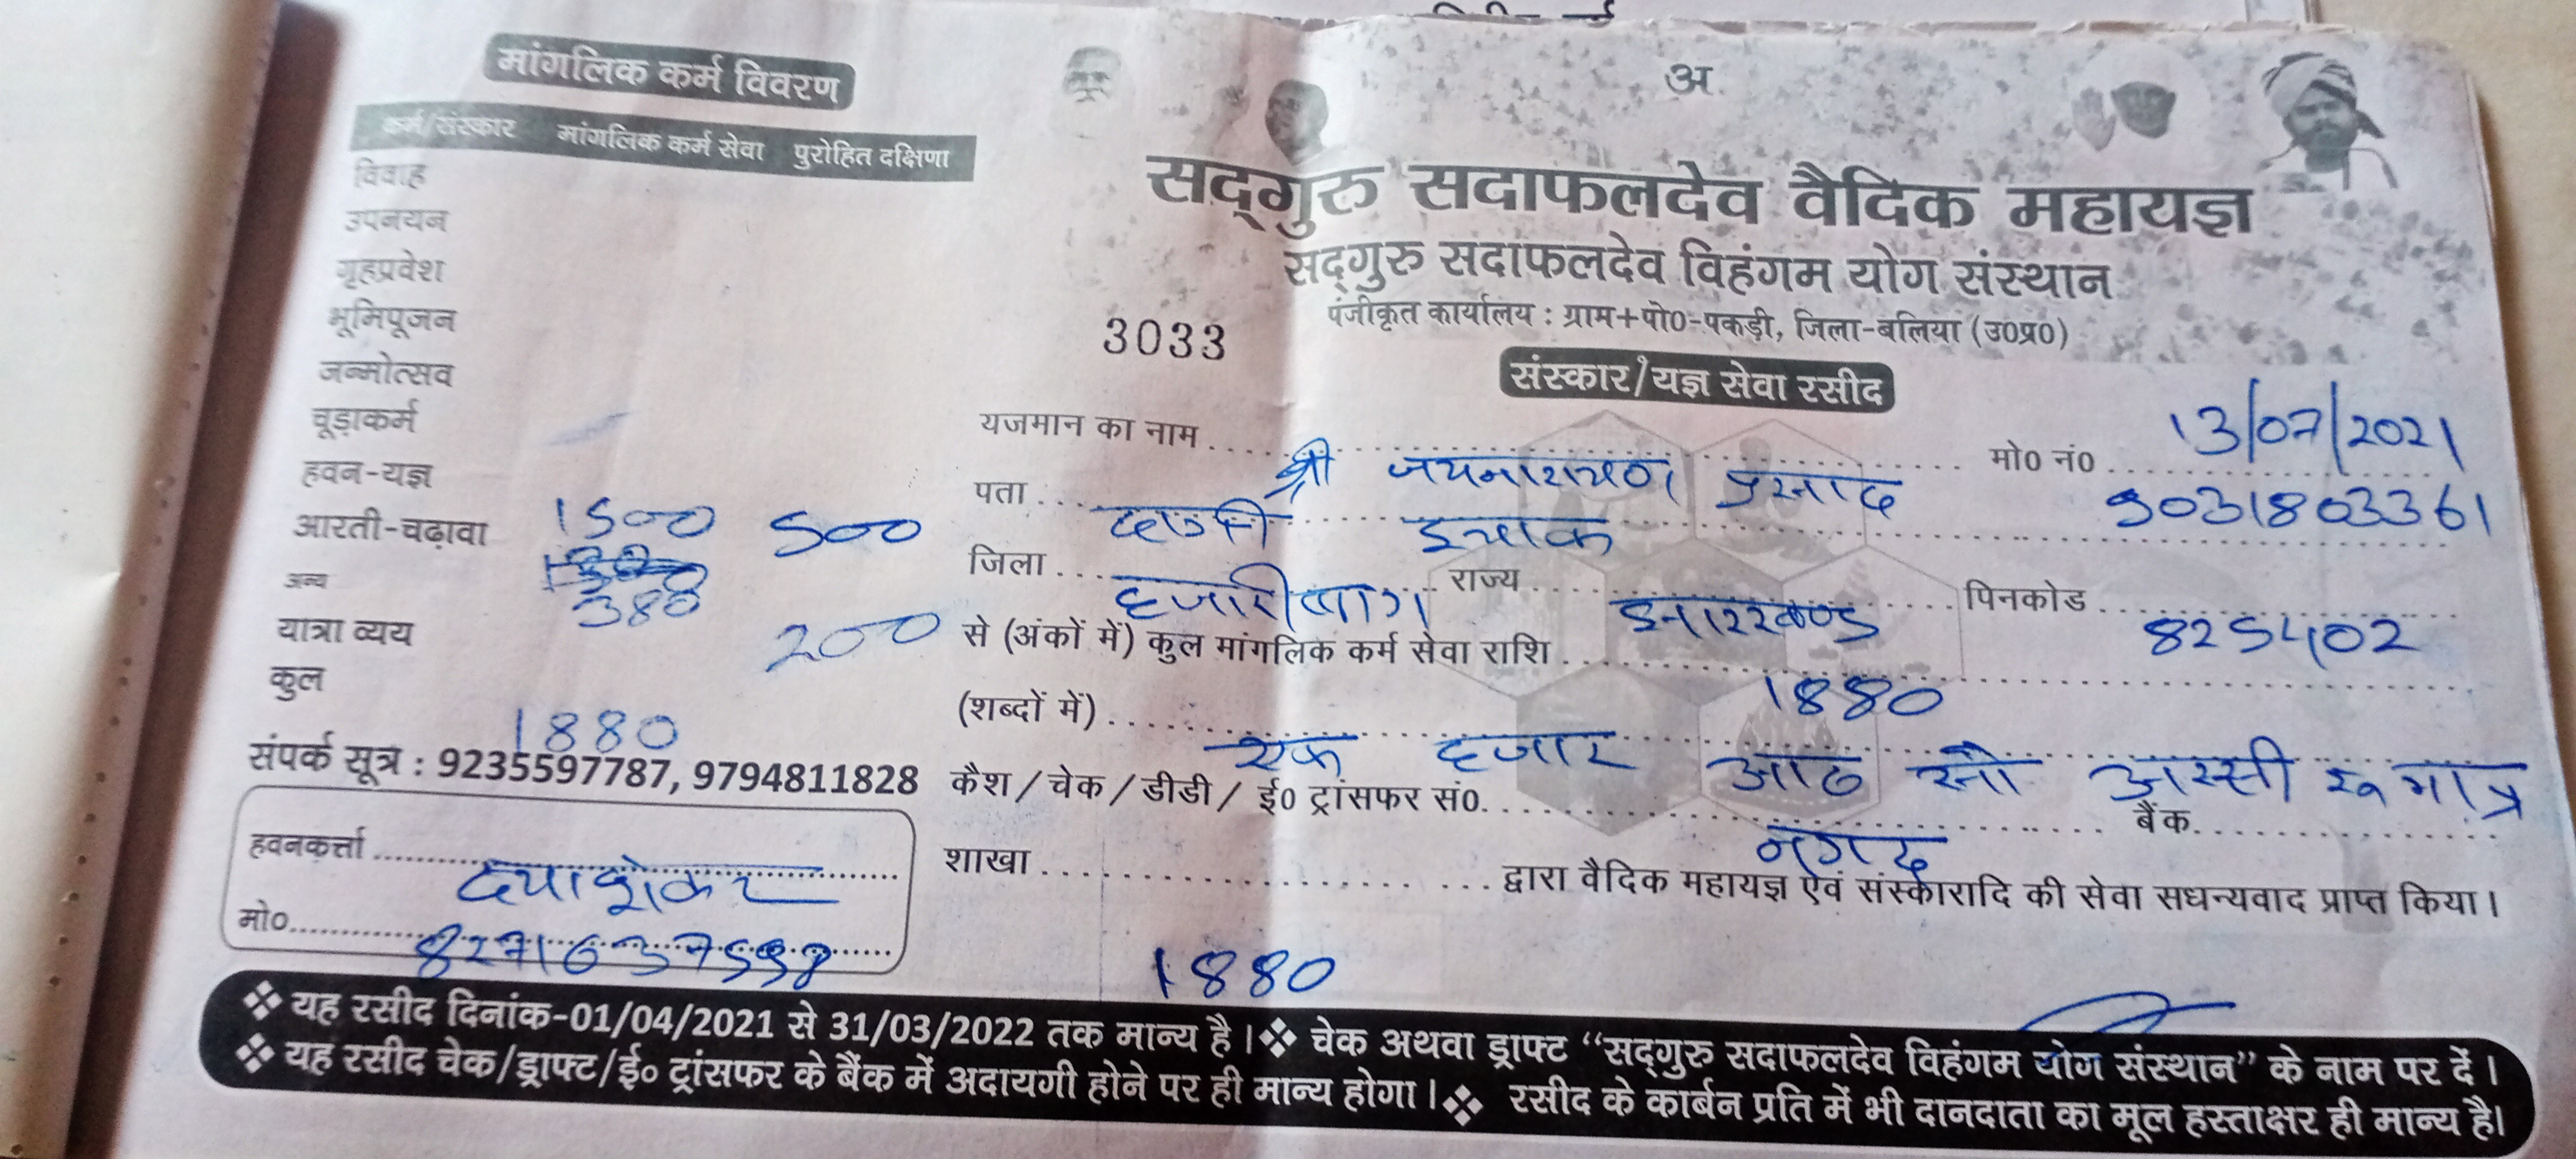 मांगलिक कर्म विवरण
कर्म/संस्कार मांगलिक कर्म सेवा पुरोहित दक्षिणा
विवाह
उपनयन
गृहप्रवेश
भूमिपूजन
जन्मोत्सव
चूड़ाकर्म
हवन-यज्ञ
आरती-चढ़ावा 1500 500
अन्य 380
यात्रा व्यय 200
कुल
1880
संपर्क सूत्र : 9235597787, 9794811828
हवनकर्त्ता दयाशंकर
मो०
अ
सद्गुरु सदाफलदेव वैदिक महायज्ञ
सद्गुरु सदाफलदेव विहंगम योग संस्थान
पंजीकृत कार्यालय : ग्राम+पो0-पकड़ी, जिला-बलिया (उ0प्र0)
3033
संस्कार/यज्ञ सेवा रसीद
13/07/2021
यजमान का नाम श्री जयनारायण प्रसाद मो0 नं0 9031803361
पता इचाक
जिला हजारीबाग राज्य झारखण्ड पिनकोड 825402
से (अंकों में) कुल मांगलिक कर्म सेवा राशि 1880
(शब्दों में) एक हजार आठ सौ अस्सी रू मात्र
कैश / चेक / डीडी / ई0 ट्रांसफर सं0. नगद बैंक
शाखा द्वारा वैदिक महायज्ञ एवं संस्कारादि की सेवा सधन्यवाद प्राप्त किया।
1880
❖ यह रसीद दिनांक-01/04/2021 से 31/03/2022 तक मान्य है। ❖ चेक अथवा ड्राफ्ट “सद्गुरु सदाफलदेव विहंगम योग संस्थान” के नाम पर दें।
❖ यह रसीद चेक/ड्राफ्ट/ई० ट्रांसफर के बैंक में अदायगी होने पर ही मान्य होगा। ❖ रसीद के कार्बन प्रति में भी दानदाता का मूल हस्ताक्षर ही मान्य है।